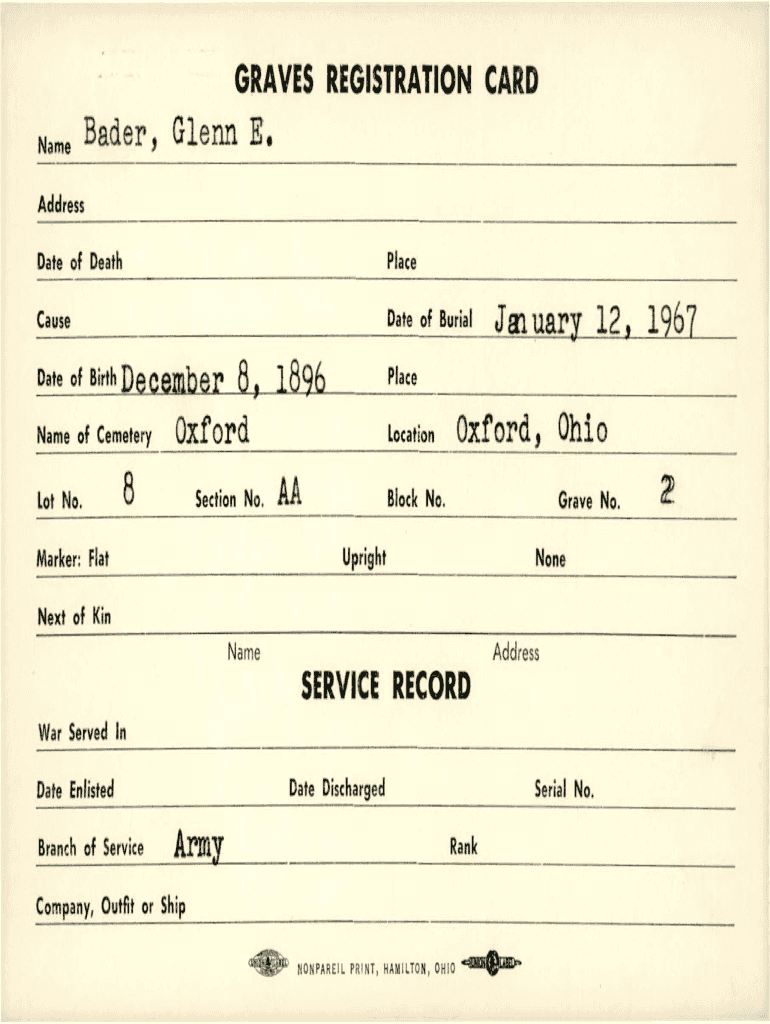 GRAVES REGISTRATION CARD
Name Bader, Glenn E.
Address
Date of Death Place
Cause Date of Burial January 12, 1967
Date of Birth December 8, 1896 Place
Name of Cemetery Oxford Location Oxford, Ohio
Lot No. 8 Section No. AA Block No. Grave No. 2
Marker: Flat Upright None
Next of Kin
Name Address
SERVICE RECORD
War Served In
Date Enlisted Date Discharged Serial No.
Branch of Service Army Rank
Company, Outfit or Ship
NONPAREIL PRINT, HAMILTON, OHIO